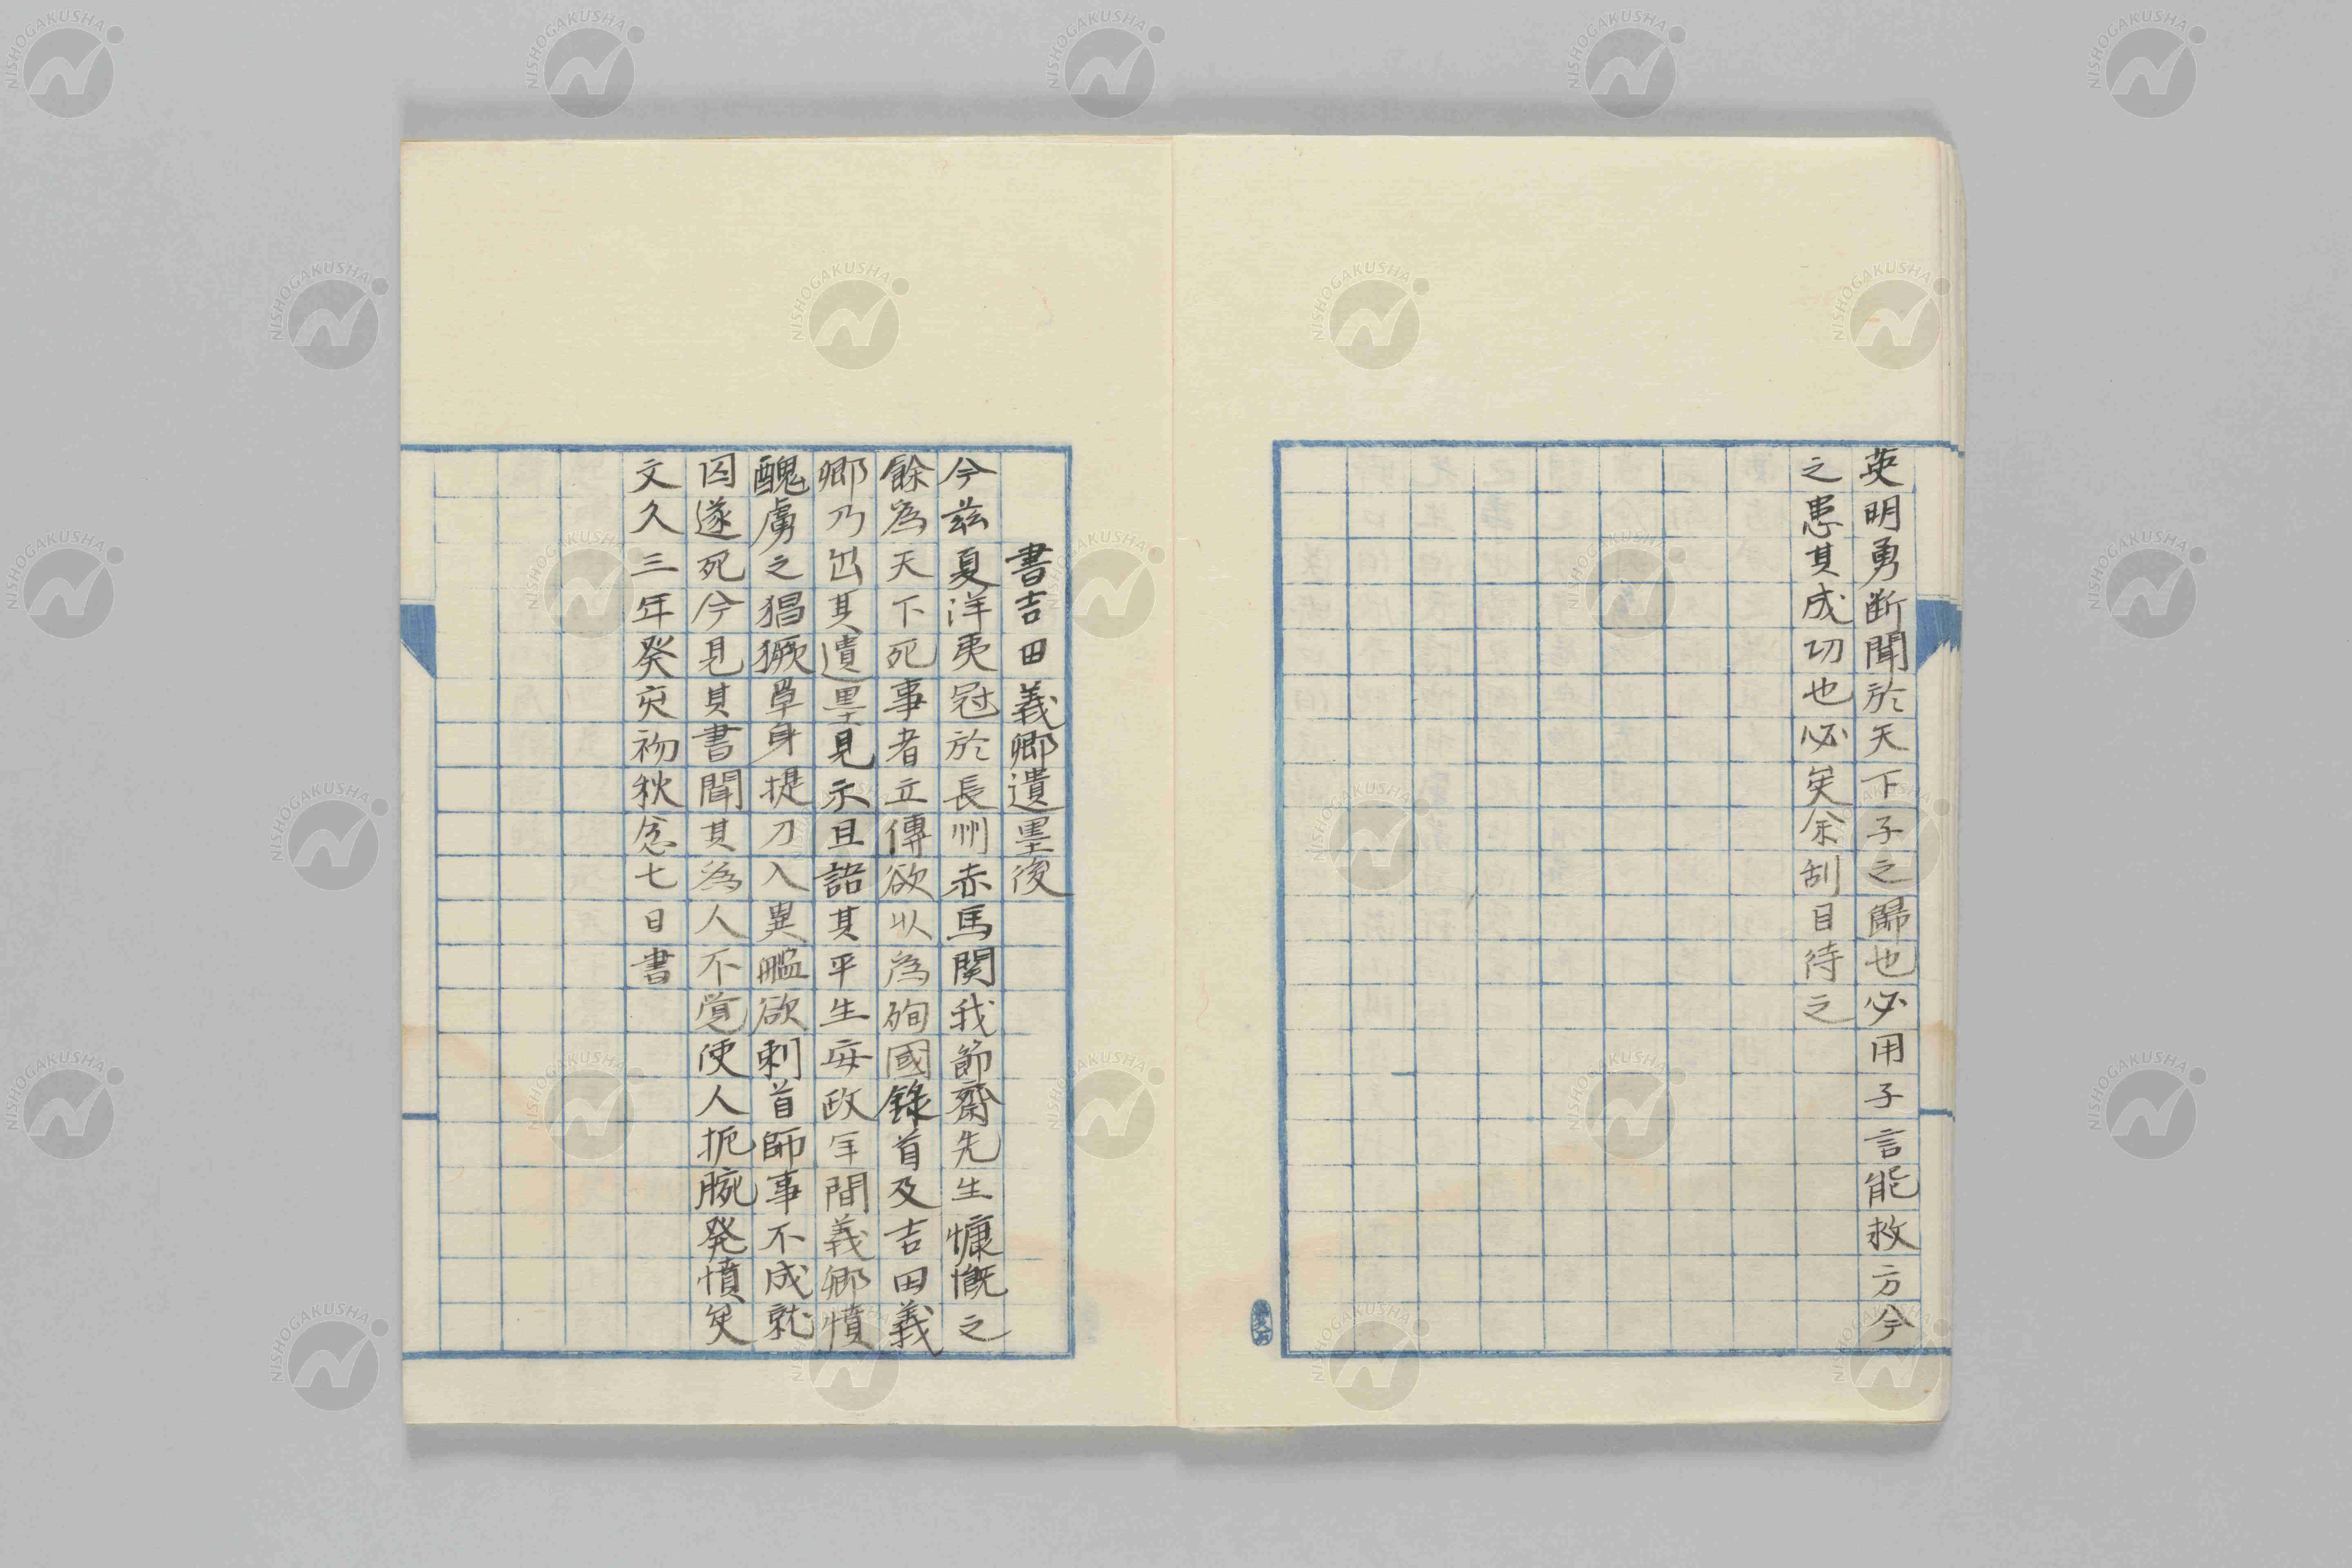 英明勇断聞於天下子之歸也必用子言能救方今
之患其成功也必矣余刮目待之
書吉田義卿遺墨後
今茲夏洋夷冠於長州赤馬関我節齋先生慷慨之
餘為天下死事者立傳欲以為殉國錄首及吉田義
卿乃出其遺墨見示且語其平生安政年間義卿憤
醜虜之猖獗單身提刀入異艦欲刺首師事不成就
囚遂死今見其書聞其為人不覚使人扼腕発憤矣
文久三年癸亥初秋念七日書